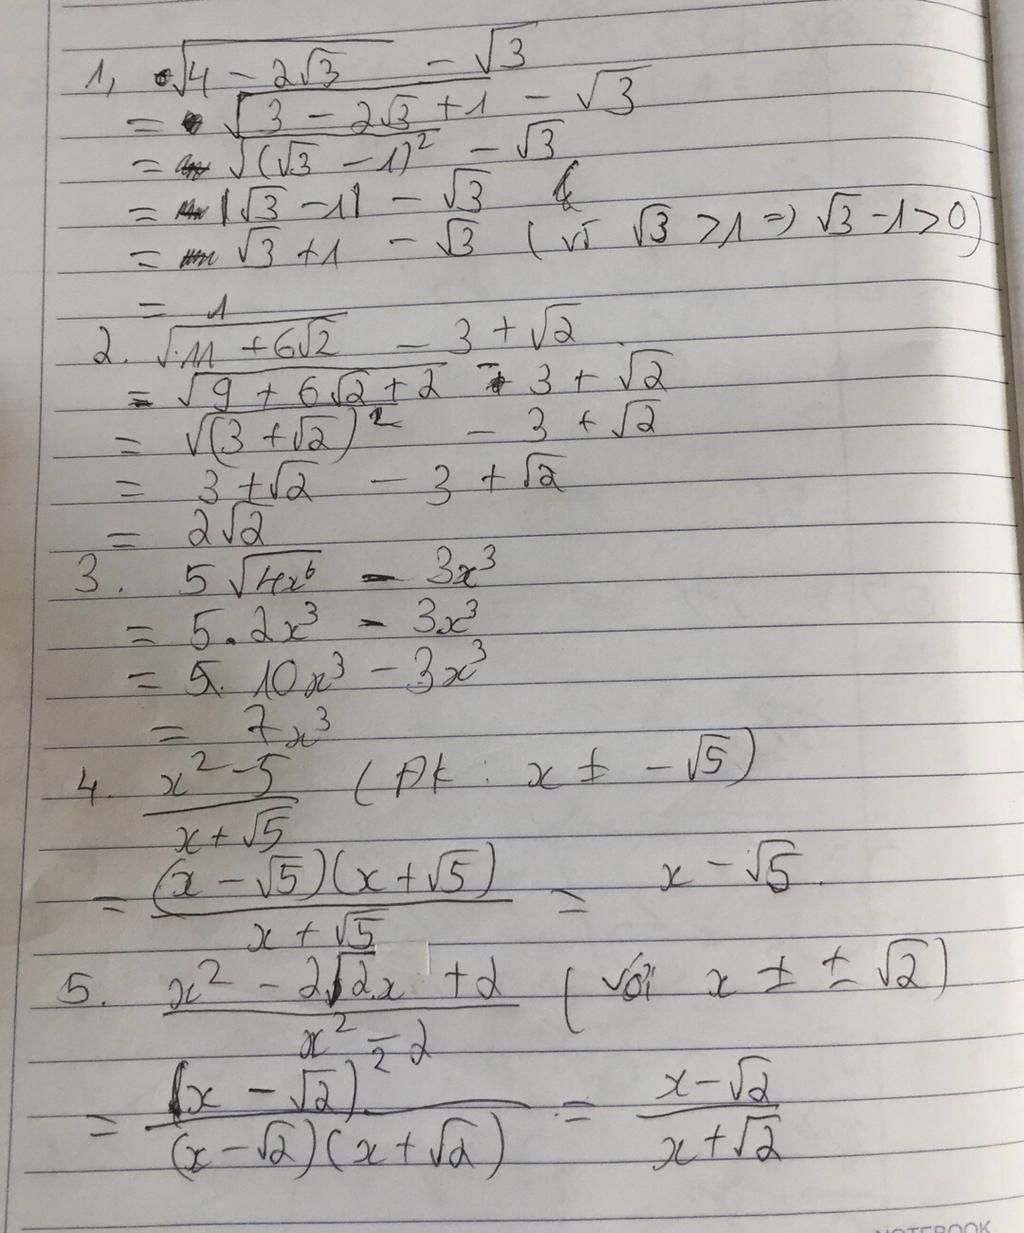 1, √(4 - 2√3) - √3
= √(3 - 2√3 + 1) - √3
= √((√3 - 1)²) - √3
= |√3 - 1| - √3
= √3 + 1 - √3 (vì √3 > 1 => √3 - 1 > 0)
= 1
2. √(11 + 6√2) - 3 + √2
= √(9 + 6√2 + 2) - 3 + √2
= √((3 + √2)²) - 3 + √2
= 3 + √2 - 3 + √2
= 2√2
3. 5√(4x⁶) - 3x³
= 5.2x³ - 3x³
= 5. 10x³ - 3x³
= 7x³
4. (x² - 5)/(x + √5) (ĐK : x ± -√5)
= ((x - √5)(x + √5))/(x + √5) = x - √5.
5. (x² - 2√2x + 2)/(x² - 2) (với x ± ± √2)
= (x - √2)²/((x - √2)(x + √2)) = (x - √2)/(x + √2)
NOTEBOOK